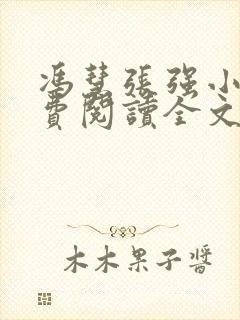 馮慧張强小
費閱讀全文
木木果子醬